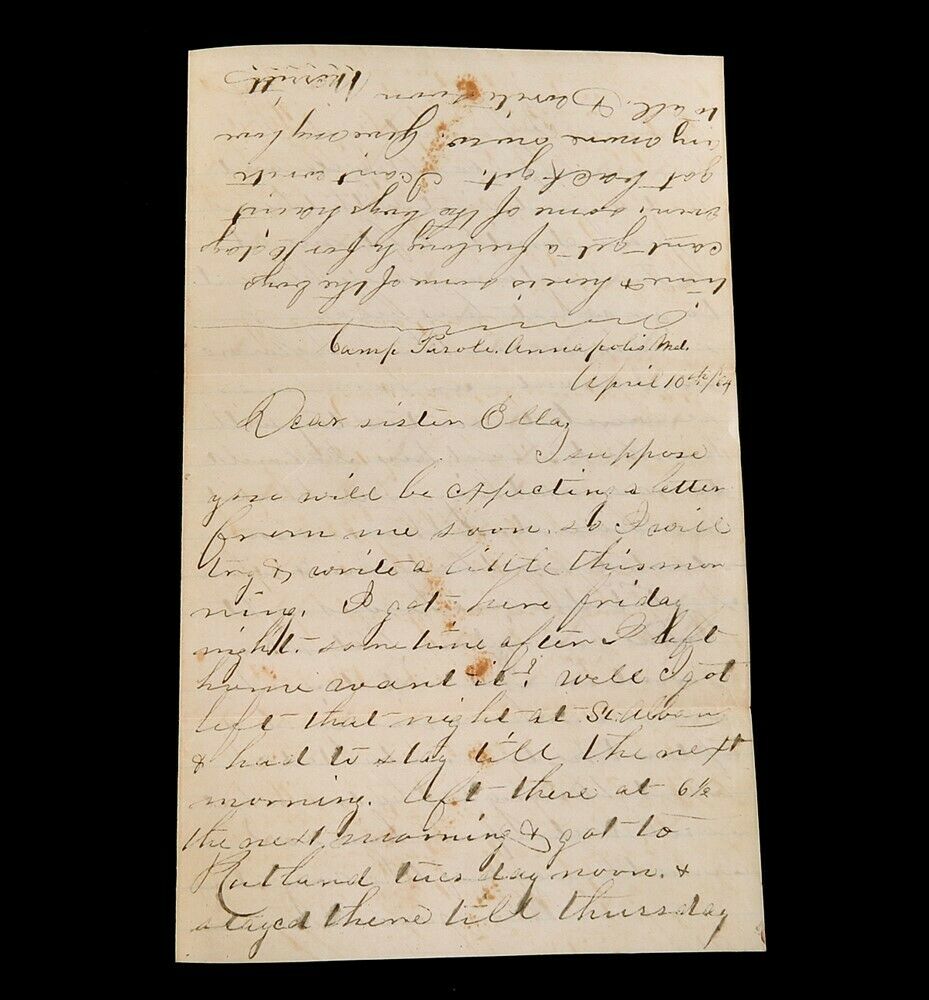 Camp Parole. Annapolis Md.
April 10th/64
Dear sister Ella,
I suppose
you will be expecting a letter
from me soon. so I will
try & write a little this mor
ning. I got here friday
night. sometime after I left
home want it? well I got
left that night at St. Albans
& had to stay till the next
morning. left there at 6½
the next morning & got to
Rutland tuesday noon. &
stayed there till thursday
time & here is some of the boys
cant get a furlough for 10 days
even. some of the boys haint
got back yet. I cant write
any more now. Give my love
to all. Write soon
Merritt